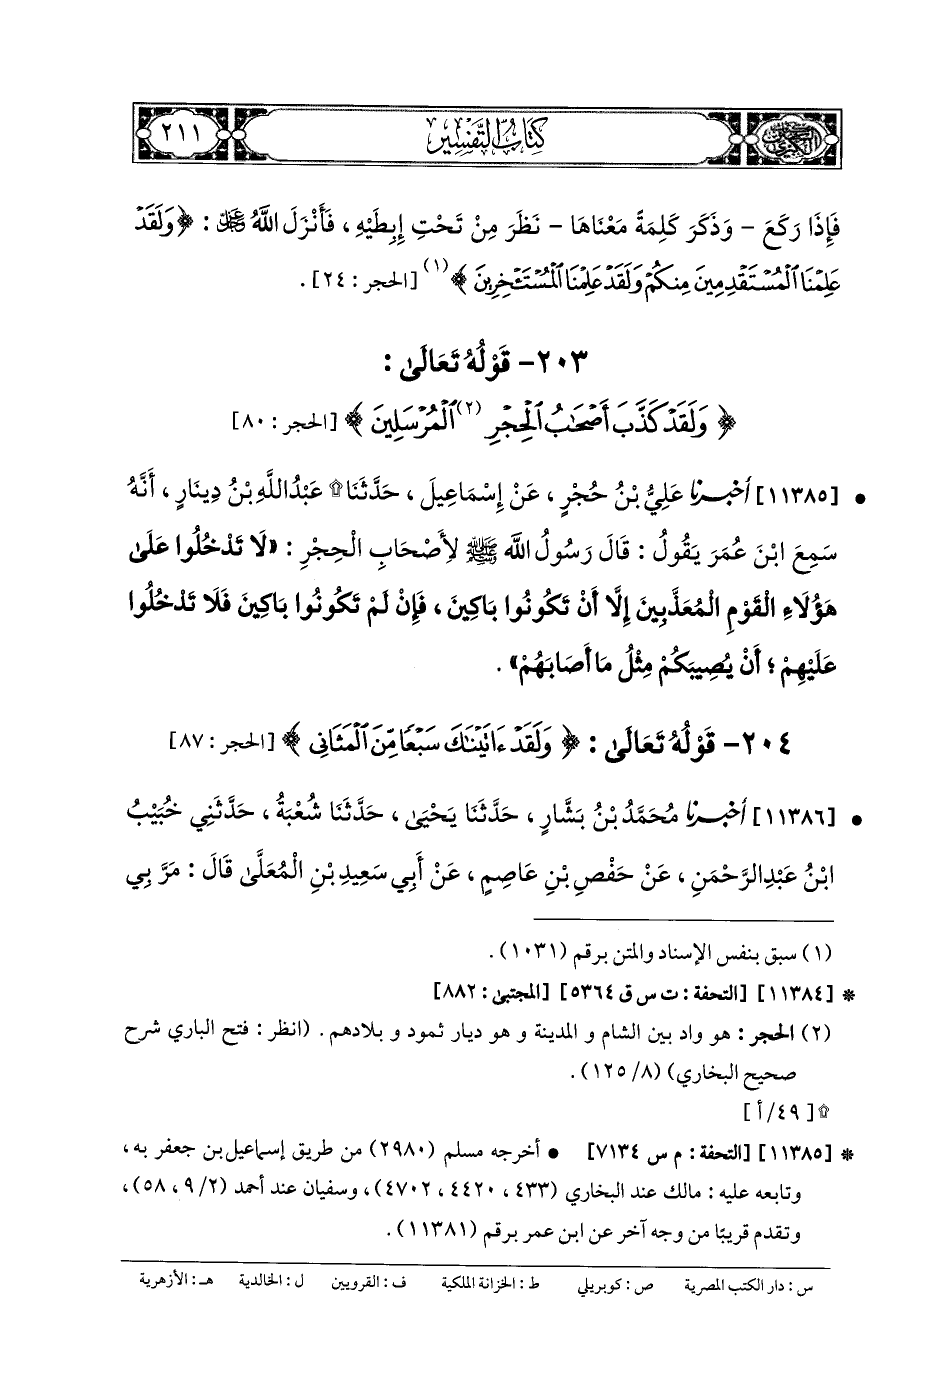 كتاب التفسير
٢١١
فَإِذَا رَكَعَ - وَذَكَرَ كَلِمَةً مَعْنَاهَا - نَظَرَ مِنْ تَحْتِ إِبِطَيْهِ ، فَأَنْزَلَ اللَّهُ : ﴿وَلَقَدْ
عَلِمْنَا ٱلْمُسْتَقْدِمِينَ مِنكُمْ وَلَقَدْ عَلِمْنَا ٱلْمُسْتَـْٔخِرِينَ﴾(١) [الحجر : ٢٤] .
٢٠٣- قَوْلُهُ تَعَالَىٰ :
﴿وَلَقَدْ كَذَّبَ أَصْحَـٰبُ ٱلْحِجْرِ(٢) ٱلْمُرْسَلِينَ﴾ [الحجر : ٨٠]
• [١١٣٨٥] أخبرنا عَلِيُّ بْنُ حُجْرٍ ، عَنْ إِسْمَاعِيلَ ، حَدَّثَنَا۩ عَبْدُ اللَّهِ بْنُ دِينَارٍ ، أَنَّهُ
سَمِعَ ابْنَ عُمَرَ يَقُولُ : قَالَ رَسُولُ اللَّهِ ﷺ لِأَصْحَابِ الْحِجْرِ : «لَا تَدْخُلُوا عَلَىٰ
هَؤُلَاءِ الْقَوْمِ الْمُعَذَّبِينَ إِلَّا أَنْ تَكُونُوا بَاكِينَ ، فَإِنْ لَمْ تَكُونُوا بَاكِينَ فَلَا تَدْخُلُوا
عَلَيْهِمْ ؛ أَنْ يُصِيبَكُمْ مِثْلُ مَا أَصَابَهُمْ» .
٢٠٤- قَوْلُهُ تَعَالَىٰ : ﴿وَلَقَدْ ءَاتَيْنَـٰكَ سَبْعًا مِّنَ ٱلْمَثَانِى﴾ [الحجر : ٨٧]
• [١١٣٨٦] أخبرنا مُحَمَّدُ بْنُ بَشَّارٍ ، حَدَّثَنَا يَحْيَىٰ ، حَدَّثَنَا شُعْبَةُ ، حَدَّثَنِي خُبَيْبُ
ابْنُ عَبْدِ الرَّحْمَنِ ، عَنْ حَفْصِ بْنِ عَاصِمٍ ، عَنْ أَبِي سَعِيدِ بْنِ الْمُعَلَّىٰ قَالَ : مَرَّ بِي
(١) سبق بنفس الإسناد والمتن برقم (١٠٣١) .
* [١١٣٨٤] [التحفة : ت س ق ٥٣٦٤] [المجتبىٰ : ٨٨٢]
(٢) الحجر : هو واد بين الشام و المدينة و هو ديار ثمود و بلادهم . (انظر : فتح الباري شرح
صحيح البخاري) (٨/ ١٢٥) .
۩ [٤٩/ أ]
* [١١٣٨٥] [التحفة : م س ٧١٣٤] • أخرجه مسلم (٢٩٨٠) من طريق إسماعيل بن جعفر به ،
وتابعه عليه : مالك عند البخاري (٤٣٣ ، ٤٤٢٠ ، ٤٧٠٢) ، وسفيان عند أحمد (٢/ ٩ ، ٥٨) ،
وتقدم قريبًا من وجه آخر عن ابن عمر برقم (١١٣٨١) .
س : دار الكتب المصرية ص : كوبريلي ط : الخزانة الملكية ف : القرويين ل : الخالدية هـ : الأزهرية